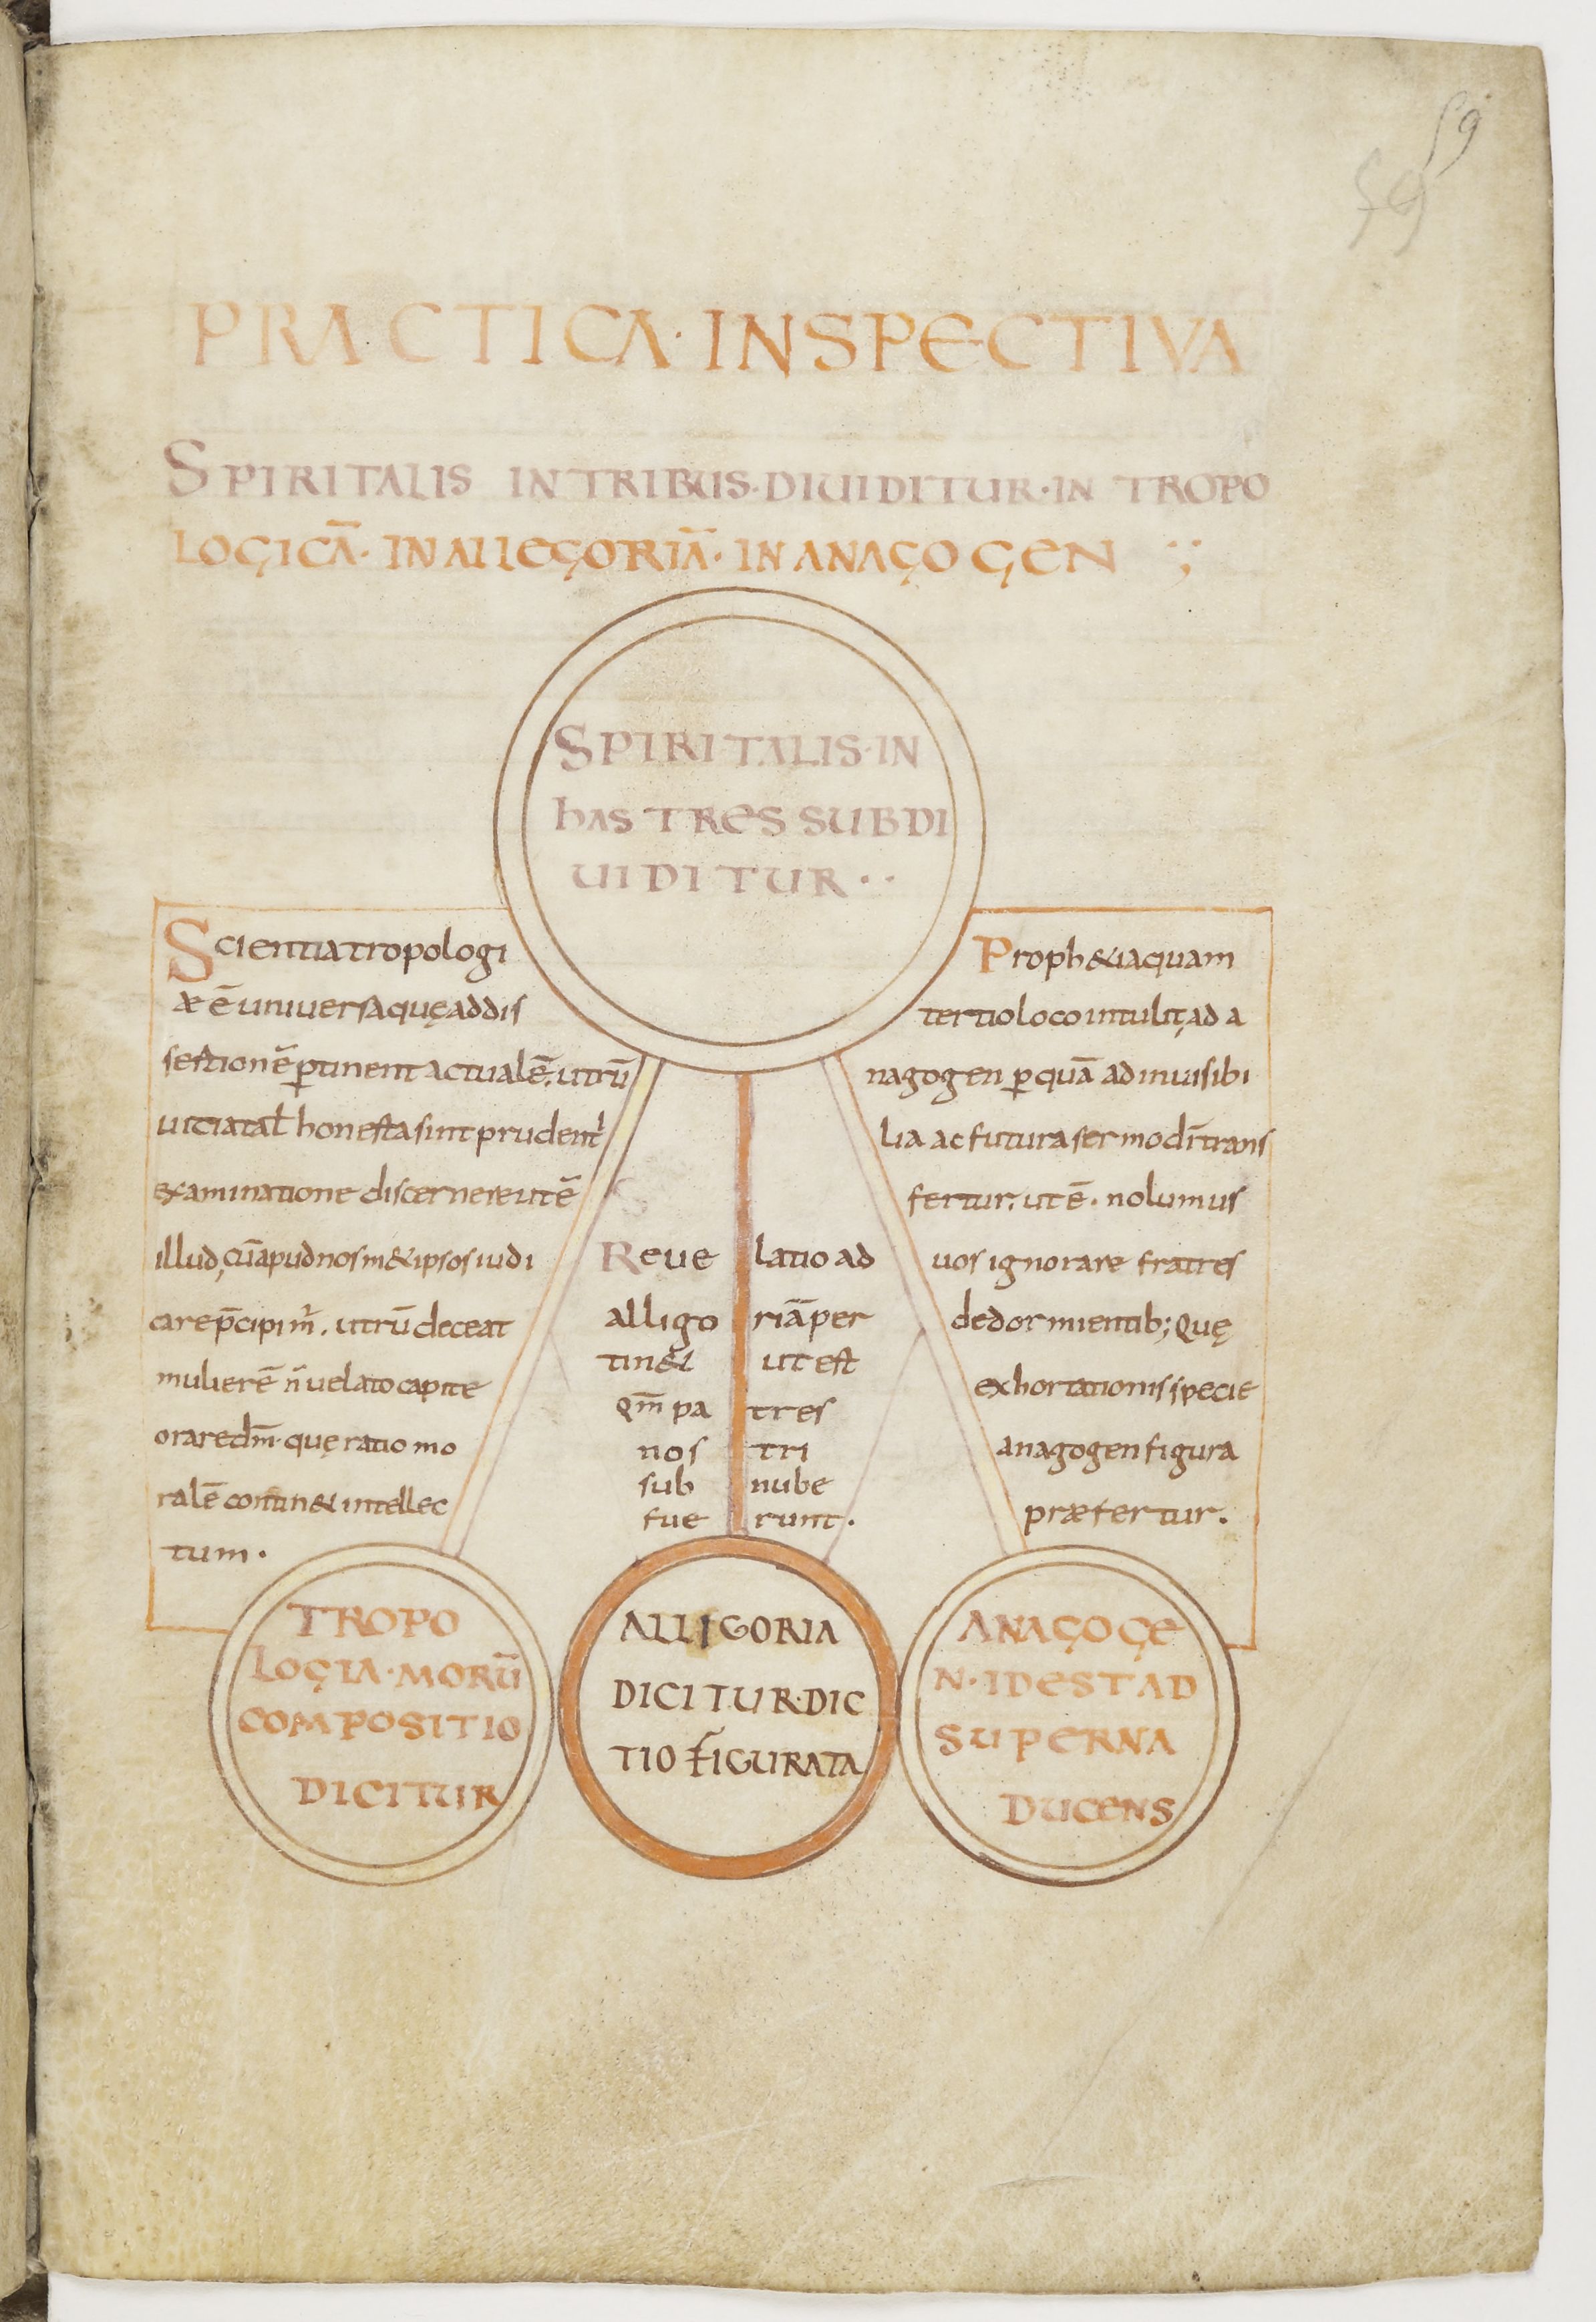 59
59
PRACTICA · INSPECTIVA
SPIRITALIS IN TRIBUS · DIUIDITUR · IN TROPO
LOGICĀ · IN ALLEGORIĀ · IN ANAGOGEN :;
SPIRITALIS · IN
hAS TRES SUBDI
UIDITUR · ·
Scientia tropologi
æ ē uniuersa quę ad dis
sertionē ꝑtinent actualē. utrū
utiliatal honesta sint prudenti
examinatione discernere ut ē
illud, cū apud nosm& ipsos iudi
care p̄cipim̄. utrū deceat
mulierē ñ uelato capite
orare dm̄ · quę ratio mo
ralē contin& intellec
tum ·
Reue latio ad
alligo riā per
tin& ut est
qm̄ pa tres
nos tri
sub nube
fue runt ·
Proph&ia quam
tertio loco intulit, ad a
nagogen ꝑ quā ad inuisibi
lia ac futura sermo dr̄ trans
fertur. ut ē. nolumus
uos ignorare fratres
de dormientib; Quę
exhortationis specie
anagogen figura
præfertur.
TROPO
LOGIA · MORŪ
COMPOSITIO
DICITUR
ALLIGORIA
DICITUR · DIC
TIO FIGURATA
ANAGOGE
N · ID EST AD
SUPERNA
DUCENS